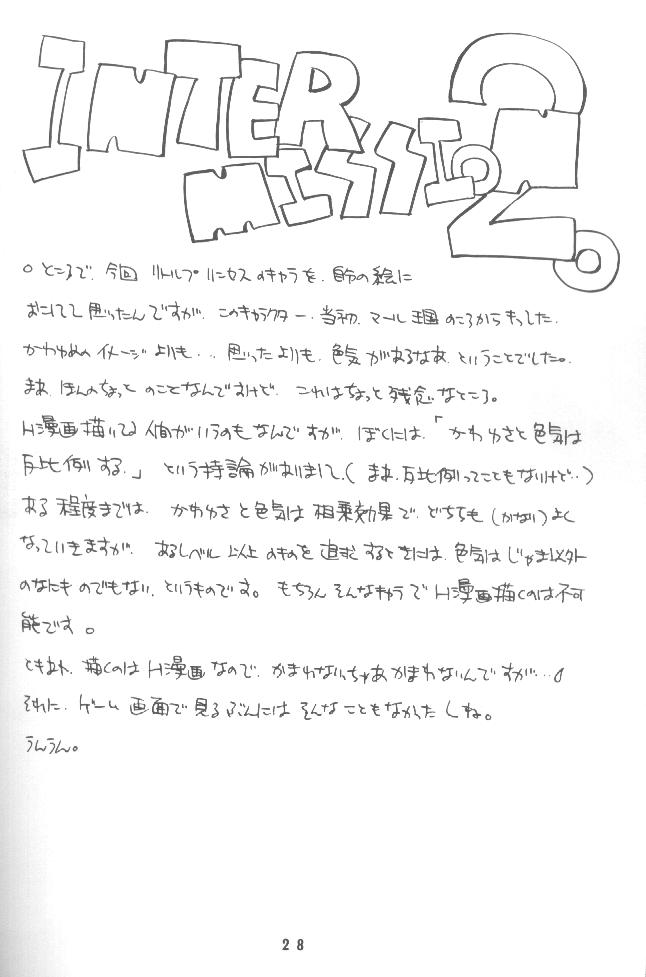 INTER
MISSION 2。
○ところで、今回 リトルプリンセスのキャラを、自分の絵に
おこしてて思ったんですが、このキャラクター、当初、マール王国のころからもってた、
かわゆめのイメージよりも‥、思ったよりも、色気があるなあ、ということでした。
まあ、ほんのちょっとのことなんですけど、これはちょっと残念なところ。
H漫画描いてる人間がいうのもなんですが、ぼくには、「かわゆさと色気は
反比例する。」という持論がありまして、(まあ、反比例ってこともないけど‥)
ある程度までは、かわゆさと色気は相乗効果で、どちらも(かなり)よく
なっていきますが、あるレベル以上のものを追求するときには、色気はじゃま以外
のなにものでもない、というものです。もちろんそんなキャラでH漫画描くのは不可
能です。
ともあれ、描くのはH漫画なので、かまわないっちゃあかまわないんですが…。
それに、ゲーム画面で見るぶんにはそんなこともなかったしね。
うんうん。
28